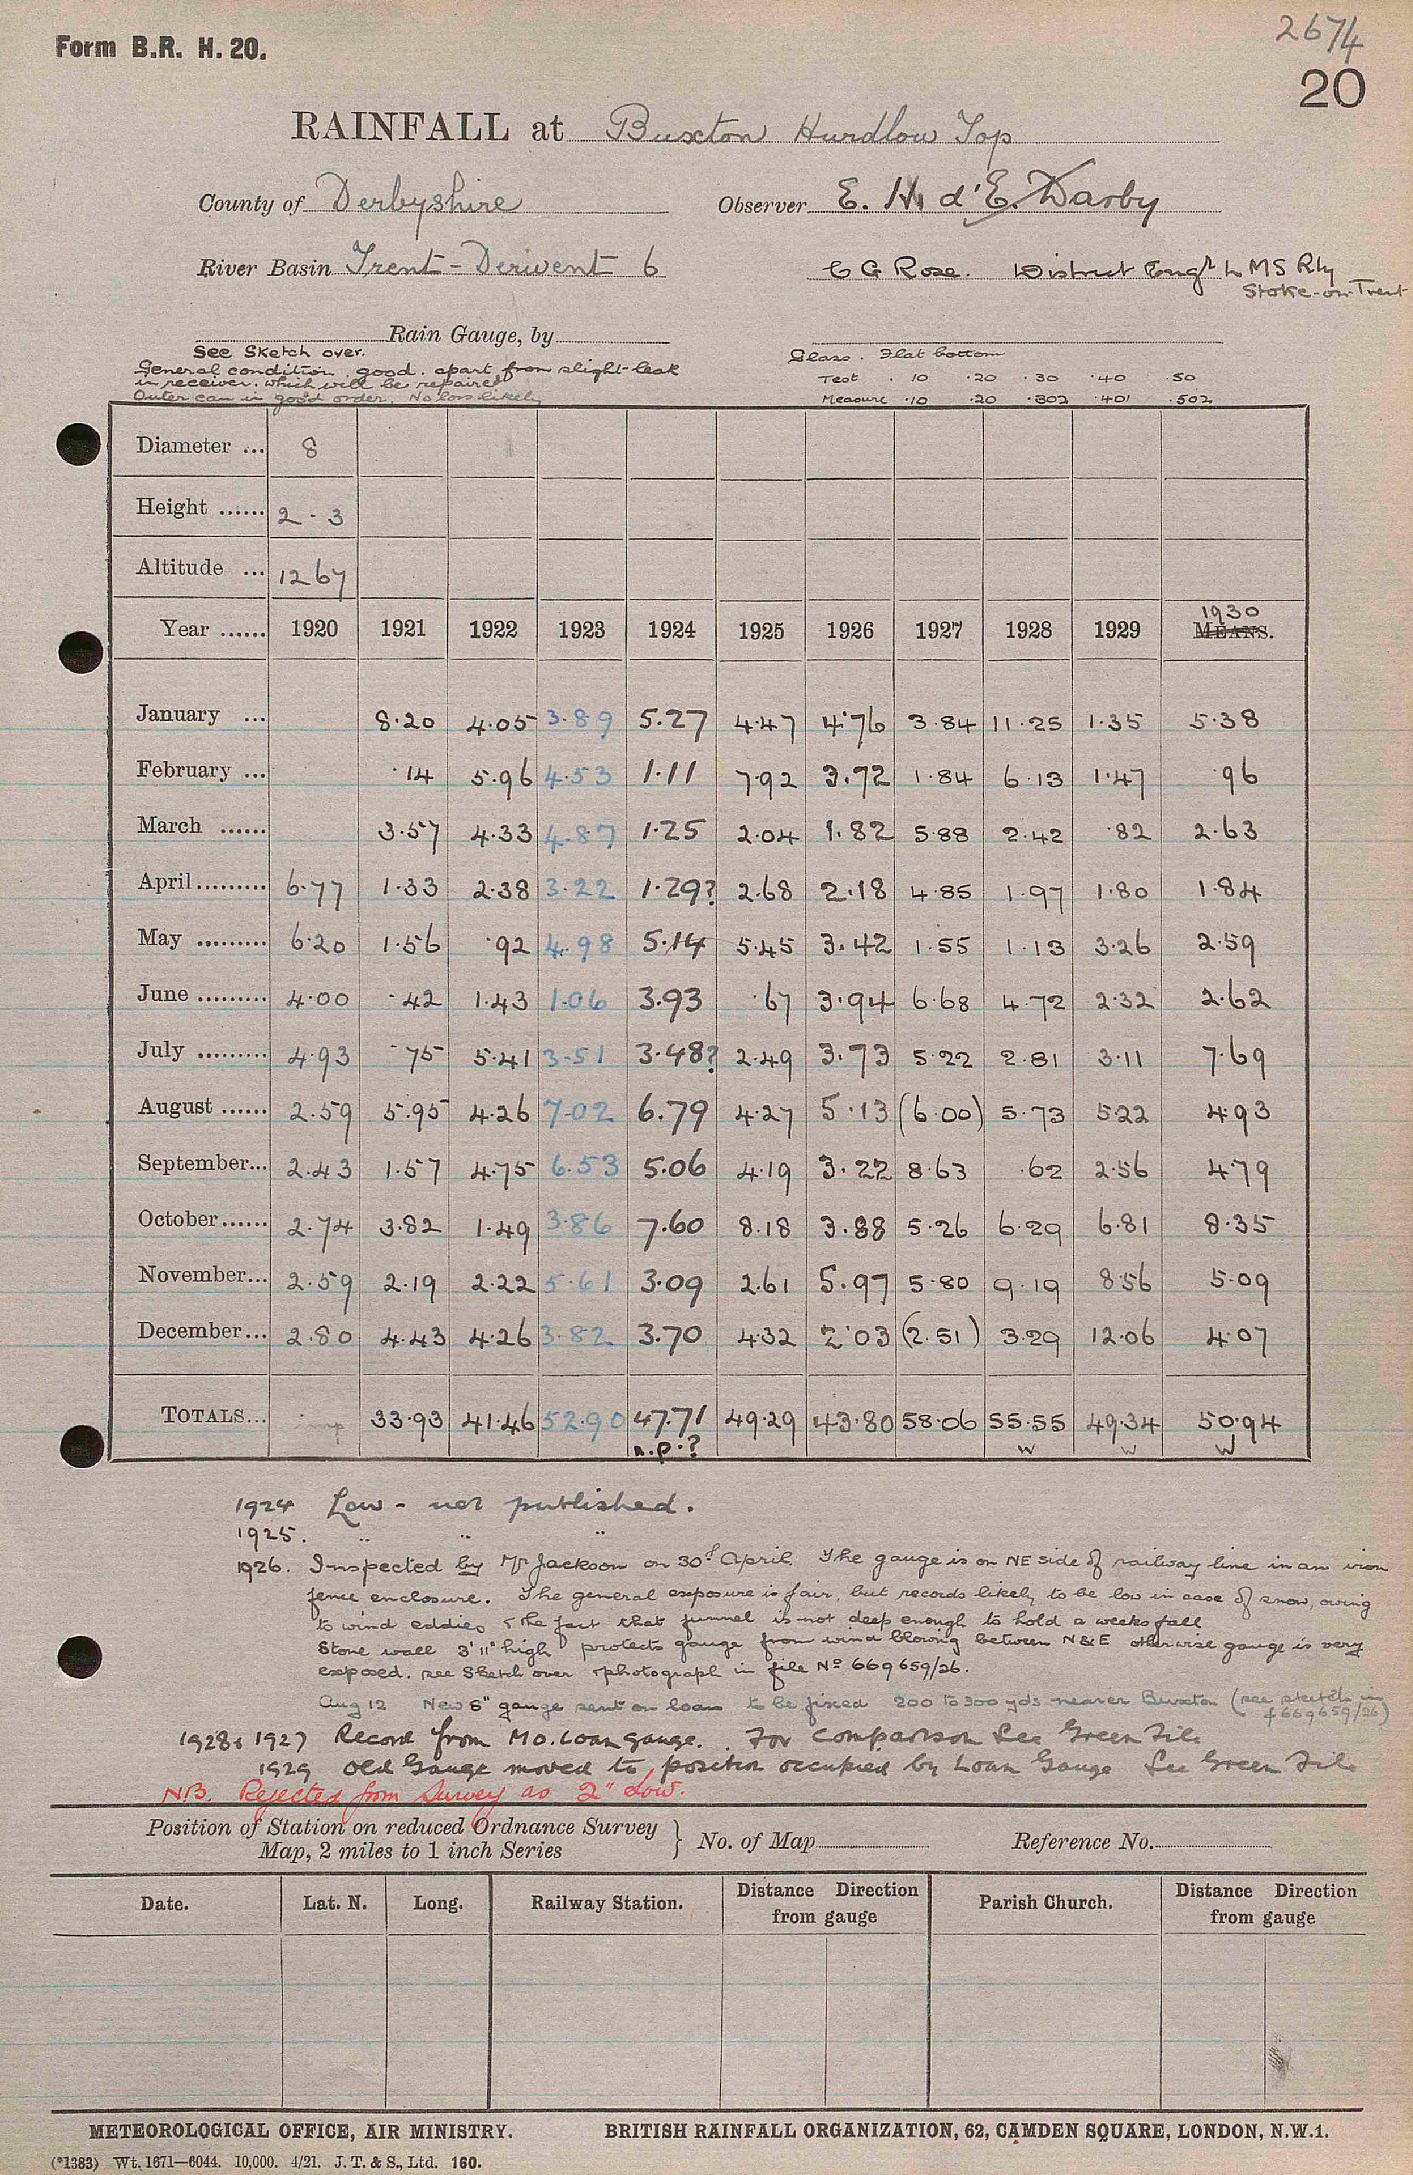 Form B.R. H. 20.
2674
20
RAINFALL at Buxton Hurdlow Top
County of Derbyshire Observer E. H. d'E. Darby
River Basin Trent - Derwent 6 C G Rose. District Engr L M S Rly
Stoke-on-Trent
Rain Gauge, by
See Sketch over. Glass. Flat bottom
General condition good. apart from slight leak Test .10 .20 .30 .40 .50
in receiver. which will be repaired Measure .10 .20 .302 .401 .502
Outer can in good order. No loss likely
Diameter ... 8
Height ...... 2 - 3
Altitude ... 1267
1930
Year ...... 1920 1921 1922 1923 1924 1925 1926 1927 1928 1929 MEANS.
January ... 8.20 4.05 3.89 5.27 4.47 4.76 3.84 11.25 1.35 5.38
February ... .14 5.96 4.53 1.11 7.92 3.72 1.84 6.13 1.47 .96
March ...... 3.57 4.33 4.87 1.25 2.04 1.82 5.88 2.42 .82 2.63
April......... 6.77 1.33 2.38 3.22 1.29? 2.68 2.18 4.85 1.97 1.80 1.84
May ......... 6.20 1.56 .92 4.98 5.14 5.45 3.42 1.55 1.13 3.26 2.59
June ......... 4.00 .42 1.43 1.06 3.93 .67 3.94 6.68 4.72 2.32 2.62
July ......... 4.93 .75 5.41 3.51 3.48? 2.49 3.73 5.22 2.81 3.11 7.69
August ...... 2.59 5.95 4.26 7.02 6.79 4.27 5.13 (6.00) 5.73 5.22 4.93
September... 2.43 1.57 4.75 6.53 5.06 4.19 3.22 8.63 .62 2.56 4.79
October...... 2.74 3.82 1.49 3.86 7.60 8.18 3.88 5.26 6.29 6.81 8.35
November... 2.59 2.19 2.22 5.61 3.09 2.61 5.97 5.80 9.19 8.56 5.09
December... 2.80 4.43 4.26 3.82 3.70 4.32 2.03 (2.51) 3.29 12.06 4.07
TOTALS... imp 33.93 41.46 52.90 47.71 49.29 43.80 58.06 55.55 49.34 50.94
n.p.? w w w
1924 Low - not published.
1925. " " "
1926. Inspected by Mr Jackson on 30th April. The gauge is on NE side of railway line in an iron
fence enclosure. The general exposure is fair, but records likely to be low in case of snow, owing
to wind eddies & the fact that funnel is not deep enough to hold a weeks fall
Stone wall 3'11" high protects gauge from wind blowing between N & E otherwise gauge is very
exposed. see Sketch over & photograph in file No 669659/26.
Aug 12 New 8" gauge sent on loan to be fixed 200 to 300 yds nearer Buxton (see sketch in
f 669659/26)
1928 & 1927 Record from M.O. Loan gauge. For Comparison See Green File
1929 Old Gauge moved to position occupied by Loan Gauge See Green File
N.B. Rejected from Survey as 2" Low.
Position of Station on reduced Ordnance Survey
Map, 2 miles to 1 inch Series } No. of Map Reference No.
Date. Lat. N. Long. Railway Station. Distance Direction from gauge Parish Church. Distance Direction from gauge
METEOROLOGICAL OFFICE, AIR MINISTRY. BRITISH RAINFALL ORGANIZATION, 62, CAMDEN SQUARE, LONDON, N.W.1.
(*1383) Wt. 1671—6044. 10,000. 4/21. J. T. & S., Ltd. 160.